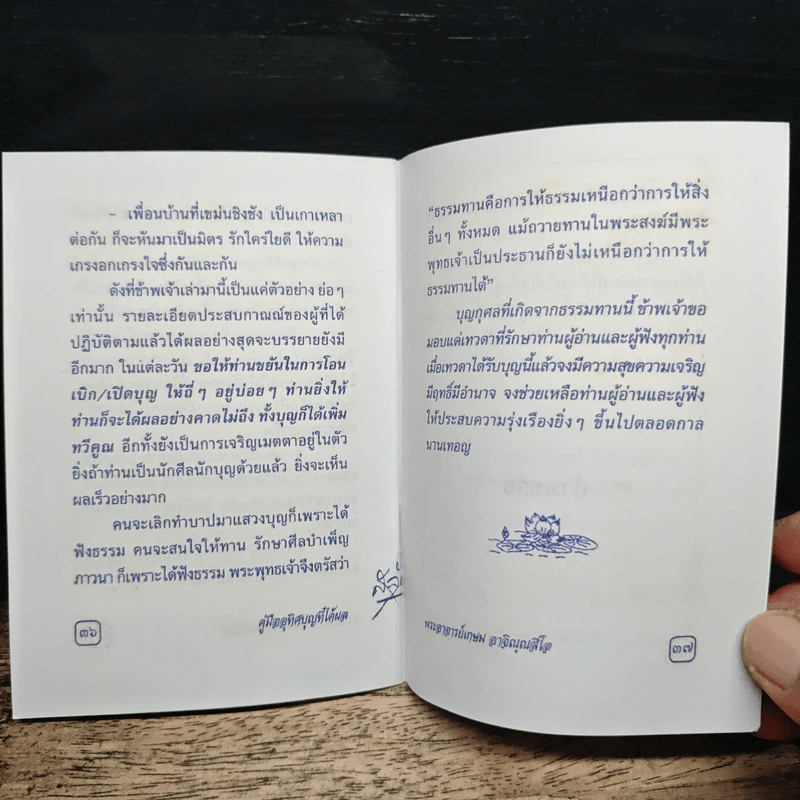 - เพื่อนบ้านที่เขม่นชิงชัง เป็นเกาเหลา
ต่อกัน ก็จะหันมาเป็นมิตร รักใคร่ใยดี ให้ความ
เกรงอกเกรงใจซึ่งกันและกัน
ดังที่ข้าพเจ้าเล่ามานี้เป็นแค่ตัวอย่าง ย่อๆ
เท่านั้น รายละเอียดประสบกาณณ์ของผู้ที่ได้
ปฏิบัติตามแล้วได้ผลอย่างสุดจะบรรยายยังมี
อีกมาก ในแต่ละวัน ขอให้ท่านขยันในการโอน
เบิก/เปิดบุญ ให้ถี่ๆ อยู่บ่อยๆ ท่านยิ่งให้
ท่านก็จะได้ผลอย่างคาดไม่ถึง ทั้งบุญก็ได้เพิ่ม
ทวีคูณ อีกทั้งยังเป็นการเจริญเมตตาอยู่ในตัว
ยิ่งถ้าท่านเป็นนักศีลนักบุญด้วยแล้ว ยิ่งจะเห็น
ผลเร็วอย่างมาก
คนจะเลิกทำบาปมาแสวงบุญก็เพราะได้
ฟังธรรม คนจะสนใจให้ทาน รักษาศีลบำเพ็ญ
ภาวนา ก็เพราะได้ฟังธรรม พระพุทธเจ้าจึงตรัสว่า
๓๖
คู่มืออุทิศบุญที่ได้ผล
"ธรรมทานคือการให้ธรรมเหนือกว่าการให้สิ่ง
อื่นๆ ทั้งหมด แม้ถวายทานในพระสงฆ์มีพระ
พุทธเจ้าเป็นประธานก็ยังไม่เหนือกว่าการให้
ธรรมทานได้"
บุญกุศลที่เกิดจากธรรมทานนี้ ข้าพเจ้าขอ
มอบแด่เทวดาที่รักษาท่านผู้อ่านและผู้ฟังทุกท่าน
เมื่อเทวดาได้รับบุญนี้แล้วจงมีความสุขความเจริญ
มีฤทธิ์มีอำนาจ จงช่วยเหลือท่านผู้อ่านและผู้ฟัง
ให้ประสบความรุ่งเรืองยิ่งๆ ขึ้นไปตลอดกาล
นานเทอญ
พระอาจารย์เกษม อาจิณฺณสีโล
๓๗